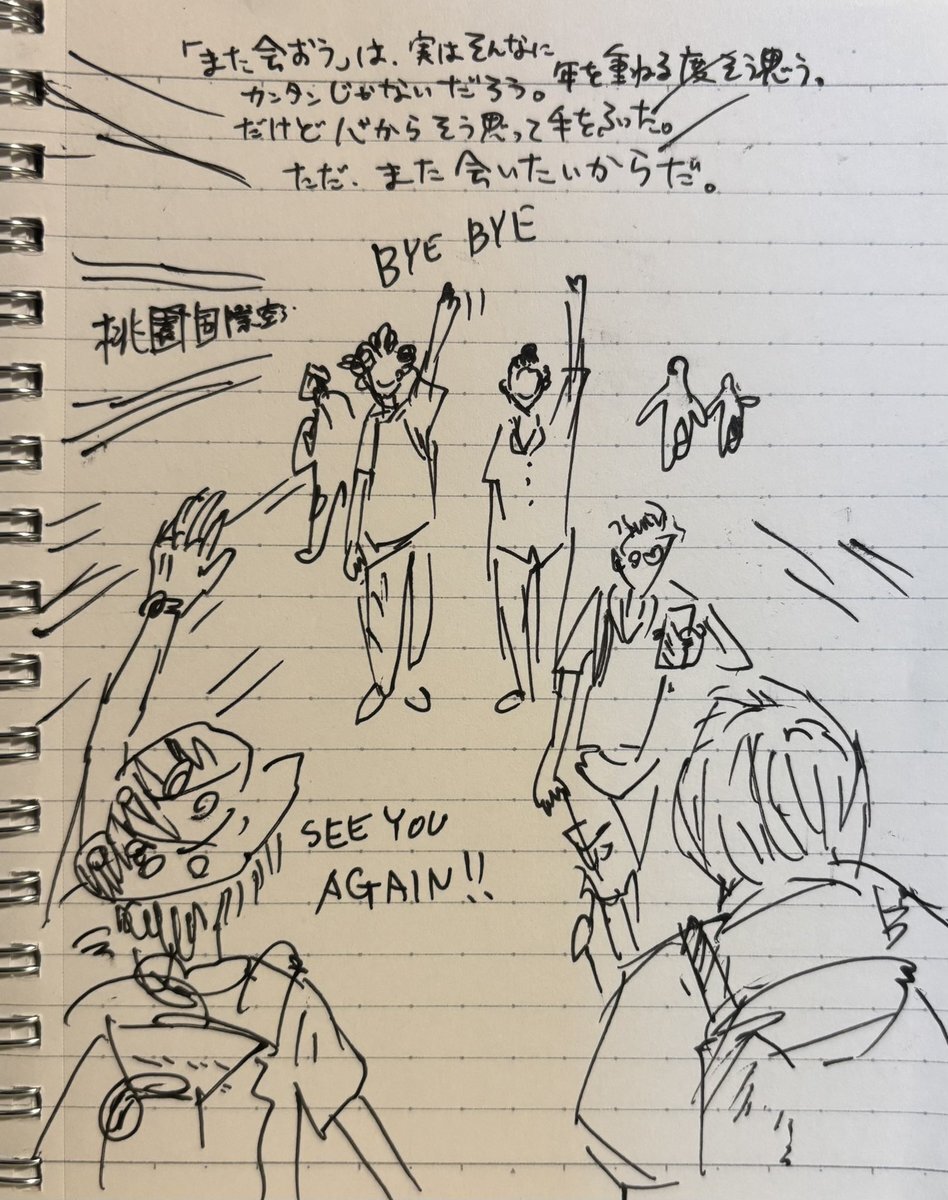 「また会おう」は、実はそんなに
カンタンじゃないだろう。
年を重ねる度そう思う。
だけど心からそう思って手をふった。
ただ、また会いたいからだ。
BYE BYE
桃園国際空
SEE YOU
AGAIN!!